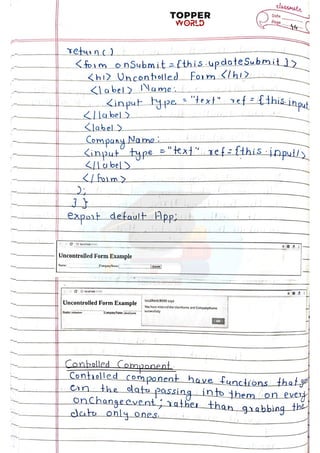 classmate
Date
Page 44
TOPPER
WORLD
return ( )
<form onSubmit = {this.updateSubmit}>
<h1> Uncontrolled Form </h1>
<label> Name:
<input type = "text" ref = {this.input
</label>
<label>
Company Name:
<input type = "text" ref = {this.input/>
</label>
</form>
);
} }
export default App;
Uncontrolled Form Example
Name:
CompanyName:
Submit
Uncontrolled Form Example
CompanyName:
localhost:3000 says
You have entered the UserName and CompanyName successfully.
OK
Controlled Component
Controlled component have functions that go
ern the data passing into them on every
onChange event; rather than grabbing the
data only ones.